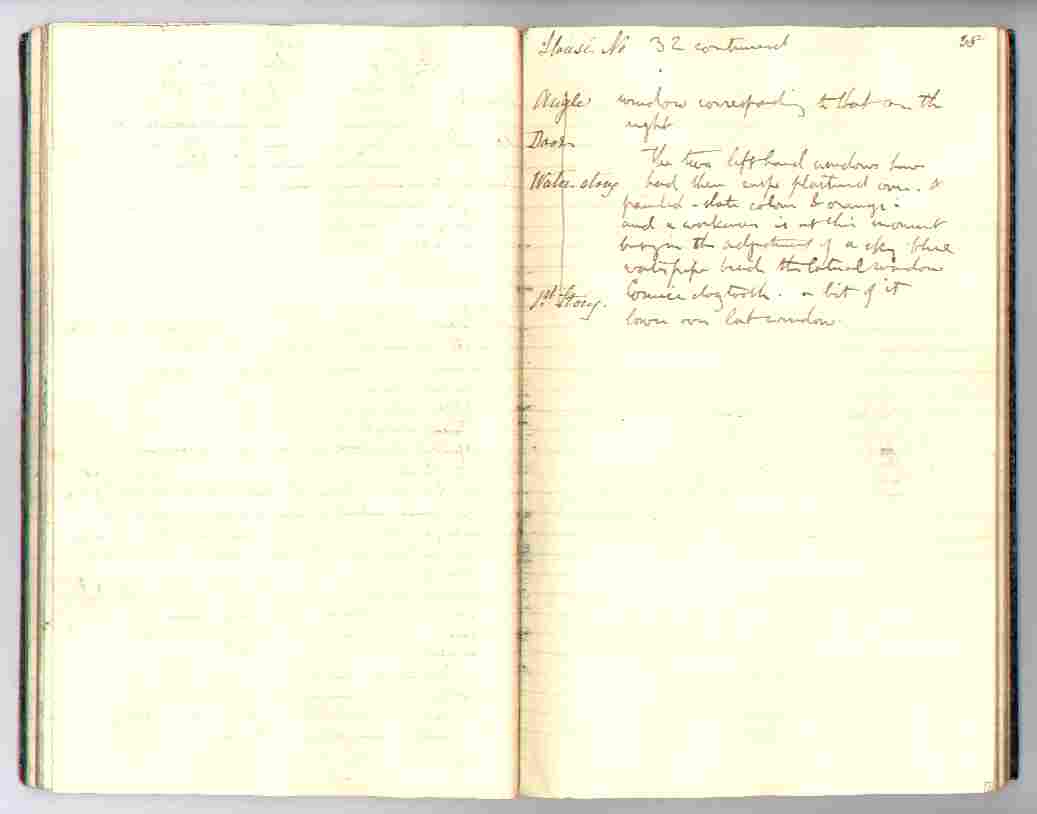 House No 32 continued 25
Angle window corresponding to that on the
right
Door
The two left hand windows have
Water story had their cusps plastered over. &
painted - slate colour & orange -
and a workman is at this moment
busy in the adjustment of a sky blue
waterpipe beside the lateral window
1st Story. Cornice dogtooth. a bit of it
lower over last window.